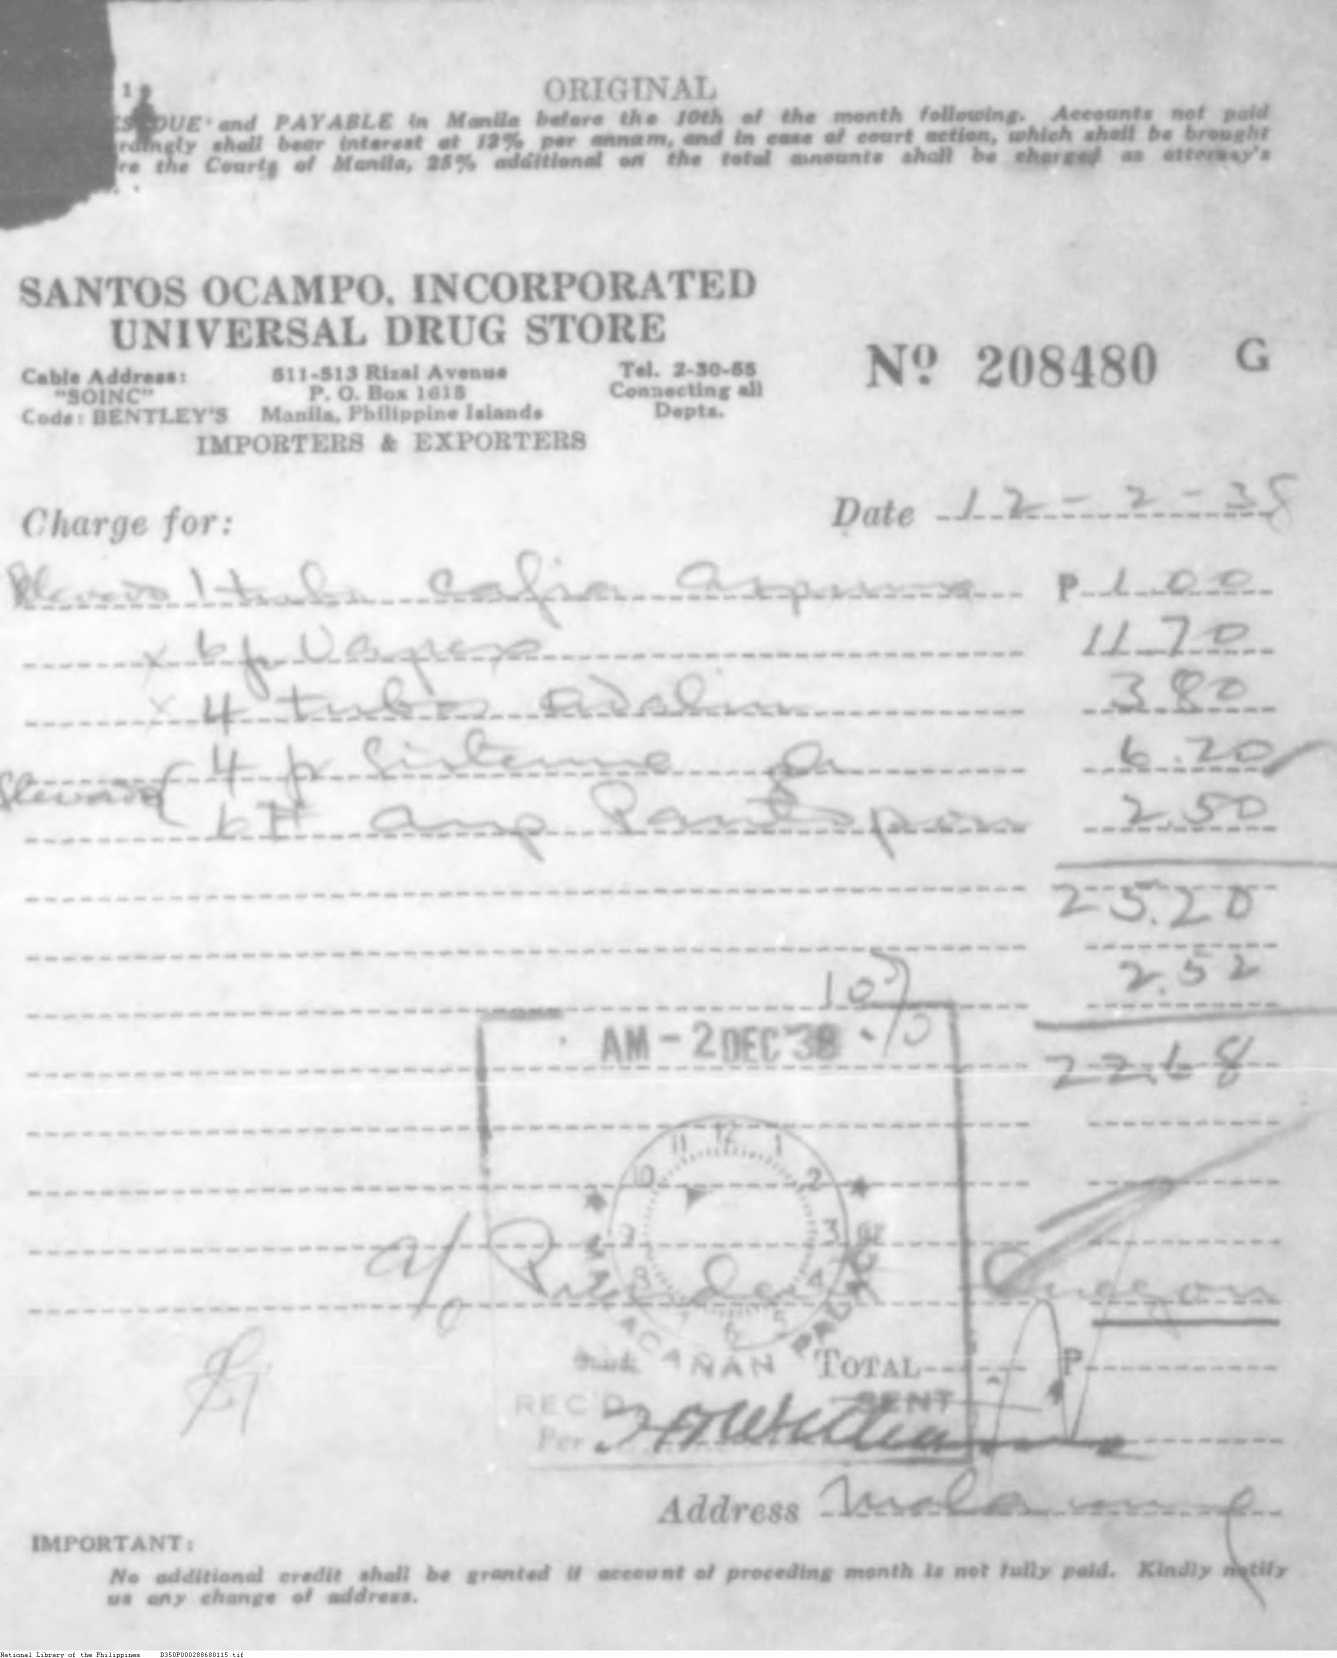 ORIGINAL
DUE and PAYABLE in Manila before the 10th of the month following. Accounts not paid
shall bear interest at 12% per annum, and in case of court action, which shall be brought
re the Courts of Manila, 25% additional on the total amounts shall be charged as attorney's
SANTOS OCAMPO, INCORPORATED
UNIVERSAL DRUG STORE
Nº 208480 G
Cable Address: 511-513 Rizal Avenue Tel. 2-30-55
"SOINC" P. O. Box 1615 Connecting all
Code: BENTLEY'S Manila, Philippine Islands Depts.
IMPORTERS & EXPORTERS
Charge for: Date 12-2-38
1 tube Cafia Aspirina P 1.00
x 6 p Vapex 11.70
x 4 tubes Adalin 3.80
4 p 6.20
6 # amp Pantopon 2.50
25.20
10% 2.52
22.68
AM - 2 DEC '38
12 1 2 3 4 5 6 7 8 9 10 11
a/c President Quezon
MALACAÑAN PALACE
TOTAL P
REC'D SENT
Per
Address
IMPORTANT:
No additional credit shall be granted if account of preceding month is not fully paid. Kindly notify
us any change of address.
National Library of the Philippines B350P000288680115.tif